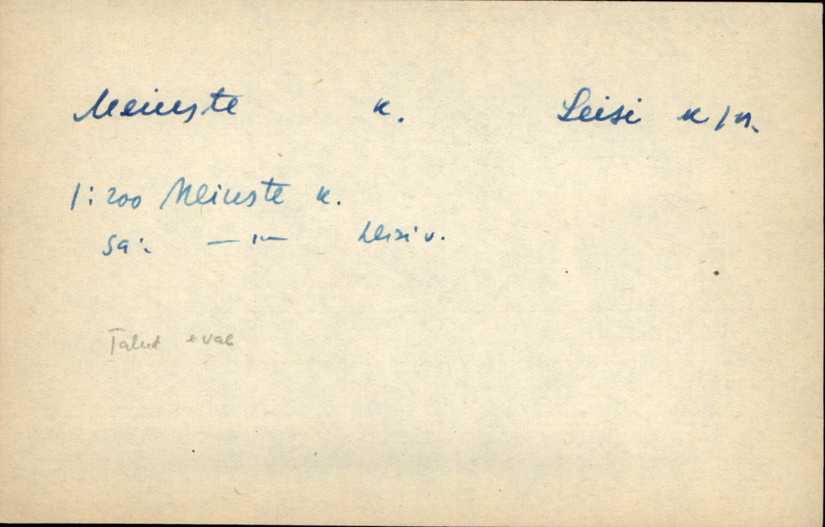 Meiuste k. Leisi k/n.
1:200 Meiuste k.
Sa: —"— Leisi v.
Talud evak